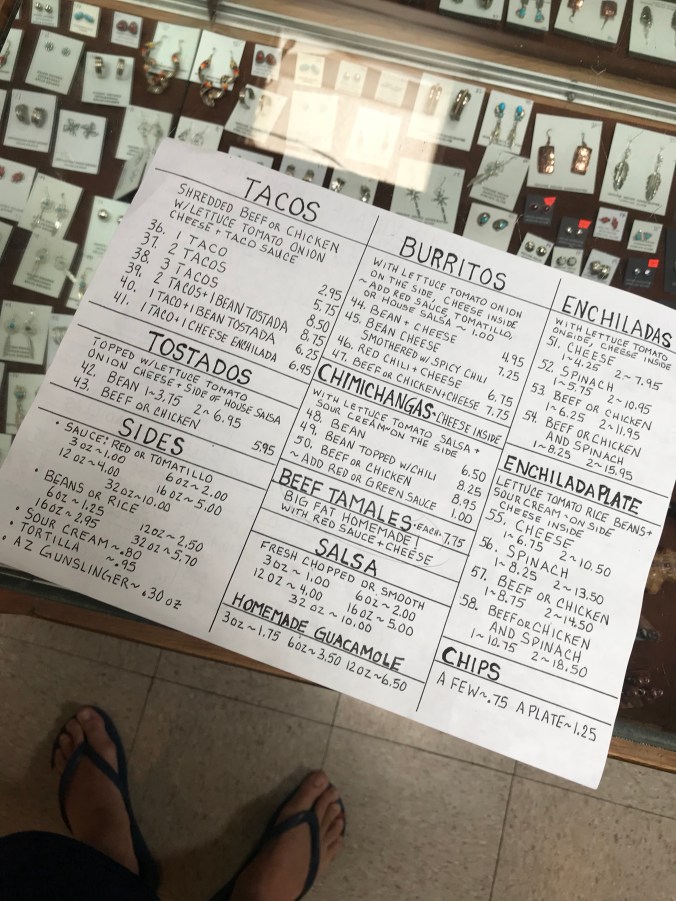 TACOS
SHREDDED BEEF OR CHICKEN
W/LETTUCE TOMATO ONION
CHEESE + TACO SAUCE
36. 1 TACO 2.95
37. 2 TACOS 5.75
38. 3 TACOS 8.50
39. 2 TACOS + 1 BEAN TOSTADA 8.75
40. 1 TACO + 1 BEAN TOSTADA 6.25
41. 1 TACO + 1 CHEESE ENCHILADA 6.95
TOSTADOS
TOPPED W/LETTUCE TOMATO
ONION CHEESE + SIDE OF HOUSE SALSA
42. BEAN 1~3.75 2~6.95
43. BEEF OR CHICKEN 5.95
SIDES
• SAUCE: RED OR TOMATILLO
3oz~1.00 6oz~2.00
12oz~4.00 16oz~5.00
32oz~10.00
• BEANS OR RICE
6oz~1.25 12oz~2.50
16oz~2.95 32oz~5.70
• SOUR CREAM~.80
• TORTILLA ~.95
• AZ GUNSLINGER~.30 oz
BURRITOS
WITH LETTUCE TOMATO ONION
ON THE SIDE, CHEESE INSIDE
~ADD RED SAUCE, TOMATILLO,
OR HOUSE SALSA ~ 1.00
44. BEAN + CHEESE 4.95
45. BEAN CHEESE
SMOTHERED W/SPICY CHILI 7.25
46. RED CHILI + CHEESE 6.75
47. BEEF OR CHICKEN + CHEESE 7.75
CHIMICHANGAS • CHEESE INSIDE
WITH LETTUCE TOMATO SALSA +
SOUR CREAM~ON THE SIDE
48. BEAN 6.50
49. BEAN TOPPED W/CHILI 8.25
50. BEEF OR CHICKEN 8.95
~ADD RED OR GREEN SAUCE 1.00
BEEF TAMALES • EACH~7.75
BIG FAT HOMEMADE
WITH RED SAUCE + CHEESE
SALSA
FRESH CHOPPED OR SMOOTH
3oz~1.00 6oz~2.00
12oz~4.00 16oz~5.00
32oz~10.00
HOMEMADE GUACAMOLE
3oz~1.75 6oz~3.50 12oz~6.50
ENCHILADAS
WITH LETTUCE TOMATO
ONSIDE, CHEESE INSIDE
51. CHEESE
1~4.25 2~7.95
52. SPINACH
1~5.75 2~10.95
53. BEEF OR CHICKEN
1~6.25 2~11.95
54. BEEF OR CHICKEN
AND SPINACH
1~8.25 2~15.95
ENCHILADA PLATE
LETTUCE TOMATO RICE BEANS +
SOUR CREAM~ON SIDE
CHEESE INSIDE
55. CHEESE
1~6.75 2~10.50
56. SPINACH
1~8.25 2~13.50
57. BEEF OR CHICKEN
1~8.75 2~14.50
58. BEEF OR CHICKEN
AND SPINACH
1~10.75 2~18.50
CHIPS
A FEW~.75 A PLATE~1.25